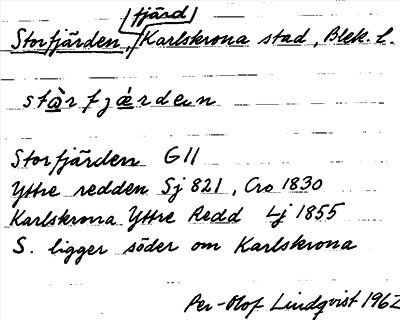 /fjärd/
Storfjärden, Karlskrona stad, Blek. l.
stàrfjǽrden
Storfjärden G11
Yttre redden Sj 821, Cro 1830
Karlskrona Yttre Redd Lj 1855
S. ligger söder om Karlskrona
Per-Olof Lindqvist 1962